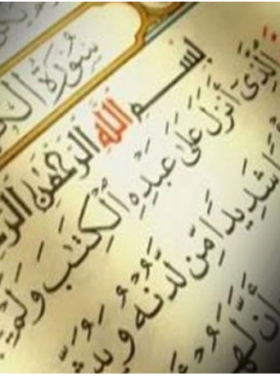 سُورَةُ الك
بِسْمِ اللَّهِ الرَّحْمَٰنِ الر
الَّذِي أَنزَلَ عَلَىٰ عَبْدِهِ الْكِتَٰبَ وَلَمْ يَ
شَدِيدًا مِّن لَّدُنْهُ وَيُبَشِّ
أَنَّ لَهُ